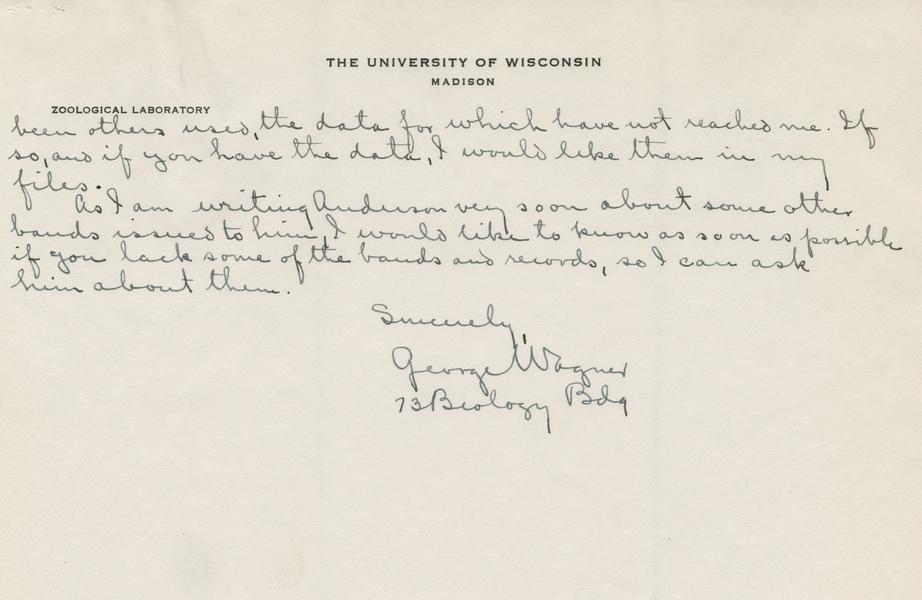 THE UNIVERSITY OF WISCONSIN
MADISON
ZOOLOGICAL LABORATORY
been others used, the data for which have not reached me. If
so, and if you have the data, I would like them in my
files.
As I am writing Anderson very soon about some other
bands issued to him I would like to know as soon as possible
if you lack some of the bands and records, so I can ask
him about them.
Sincerely,
George Wagner
73 Biology Bdg